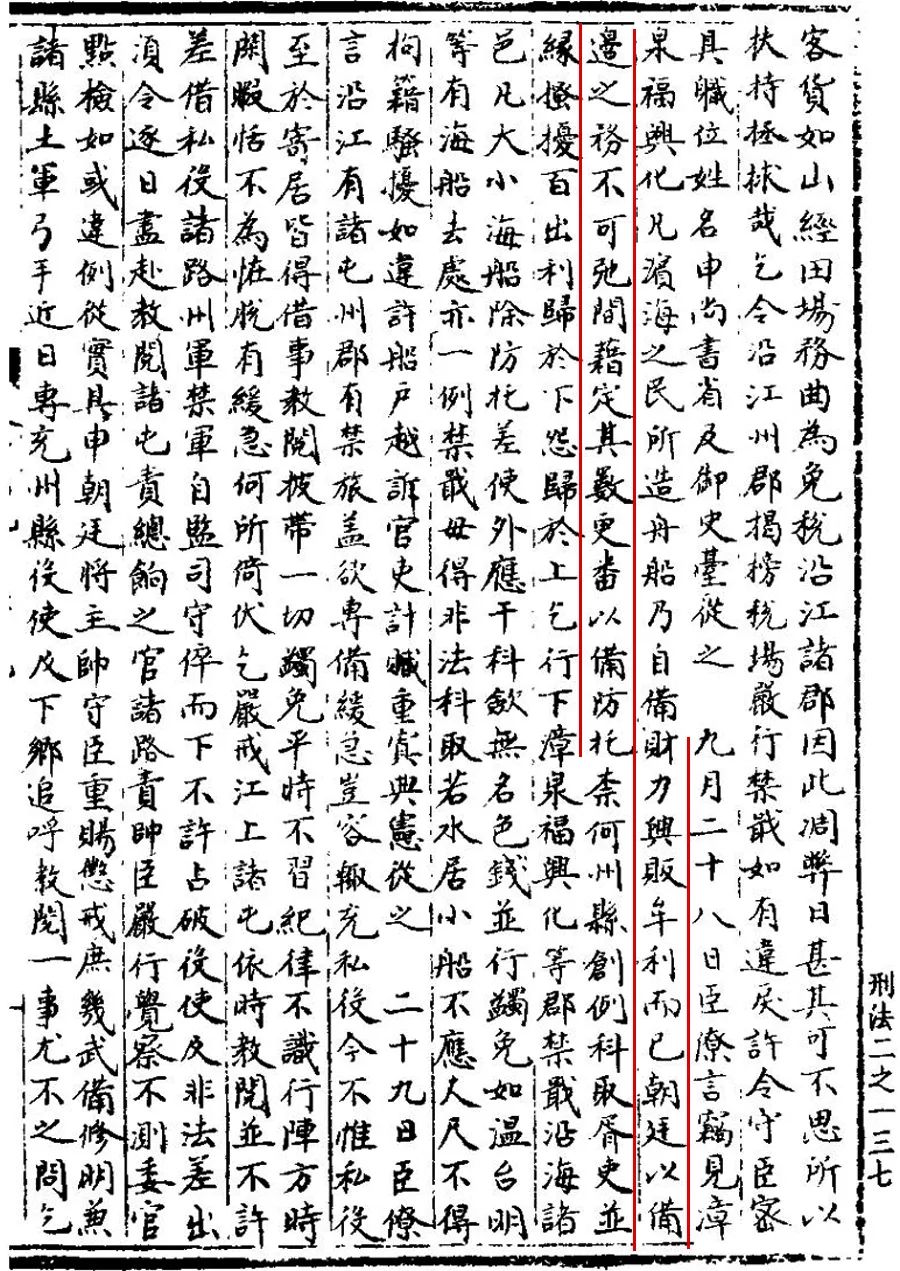 客貨如山經由場務曲為免税沿江諸郡因此凋弊日甚其可不思所以
扶持拯捄哉乞令沿江州郡揭榜税場嚴行禁戢如有違戾許令守臣密
具職位姓名申尚書省及御史臺從之　九月二十八日臣僚言竊見漳
泉福興化凡濱海之民所造舟船乃自備財力興販牟利而已朝廷以備
邊之務不可弛間藉定其數更番以備防托柰何州縣創例科取胥吏並
緣搔擾百出利歸於下怨歸於上乞行下漳泉福興化等郡禁戢沿海諸
邑凡大小海船除防托差使外應干科歛無名色錢並行蠲免如温台明
等有海船去處亦一例禁戢毋得非法科取若水居小船不應丈尺不得
拘籍騷擾如違許船戶越訴官吏計贓重寘典憲從之　二十九日臣僚
言沿江有諸屯州郡有禁旅盖欲專備緩急豈容輙充私役今不惟私役
至於寄居皆得借事教閱披帶一切蠲免平時不習紀律不識行陣方時
閑暇恬不為恠脱有緩急何所倚伏乞嚴戒江上諸屯依時教閱並不許
差借私役諸路州軍禁軍自監司守倅而下不許占破役使及非法差出
須令逐日盡赴教閱諸屯責總餉之官諸路責帥臣嚴行覺察不測委官
點檢如或違例從實具申朝廷將主帥守臣重賜懲戒庶幾武備修明兼
諸縣土軍弓手近日專充州縣役使及下鄉追呼教閱一事尤不之問乞
刑法二之一三七